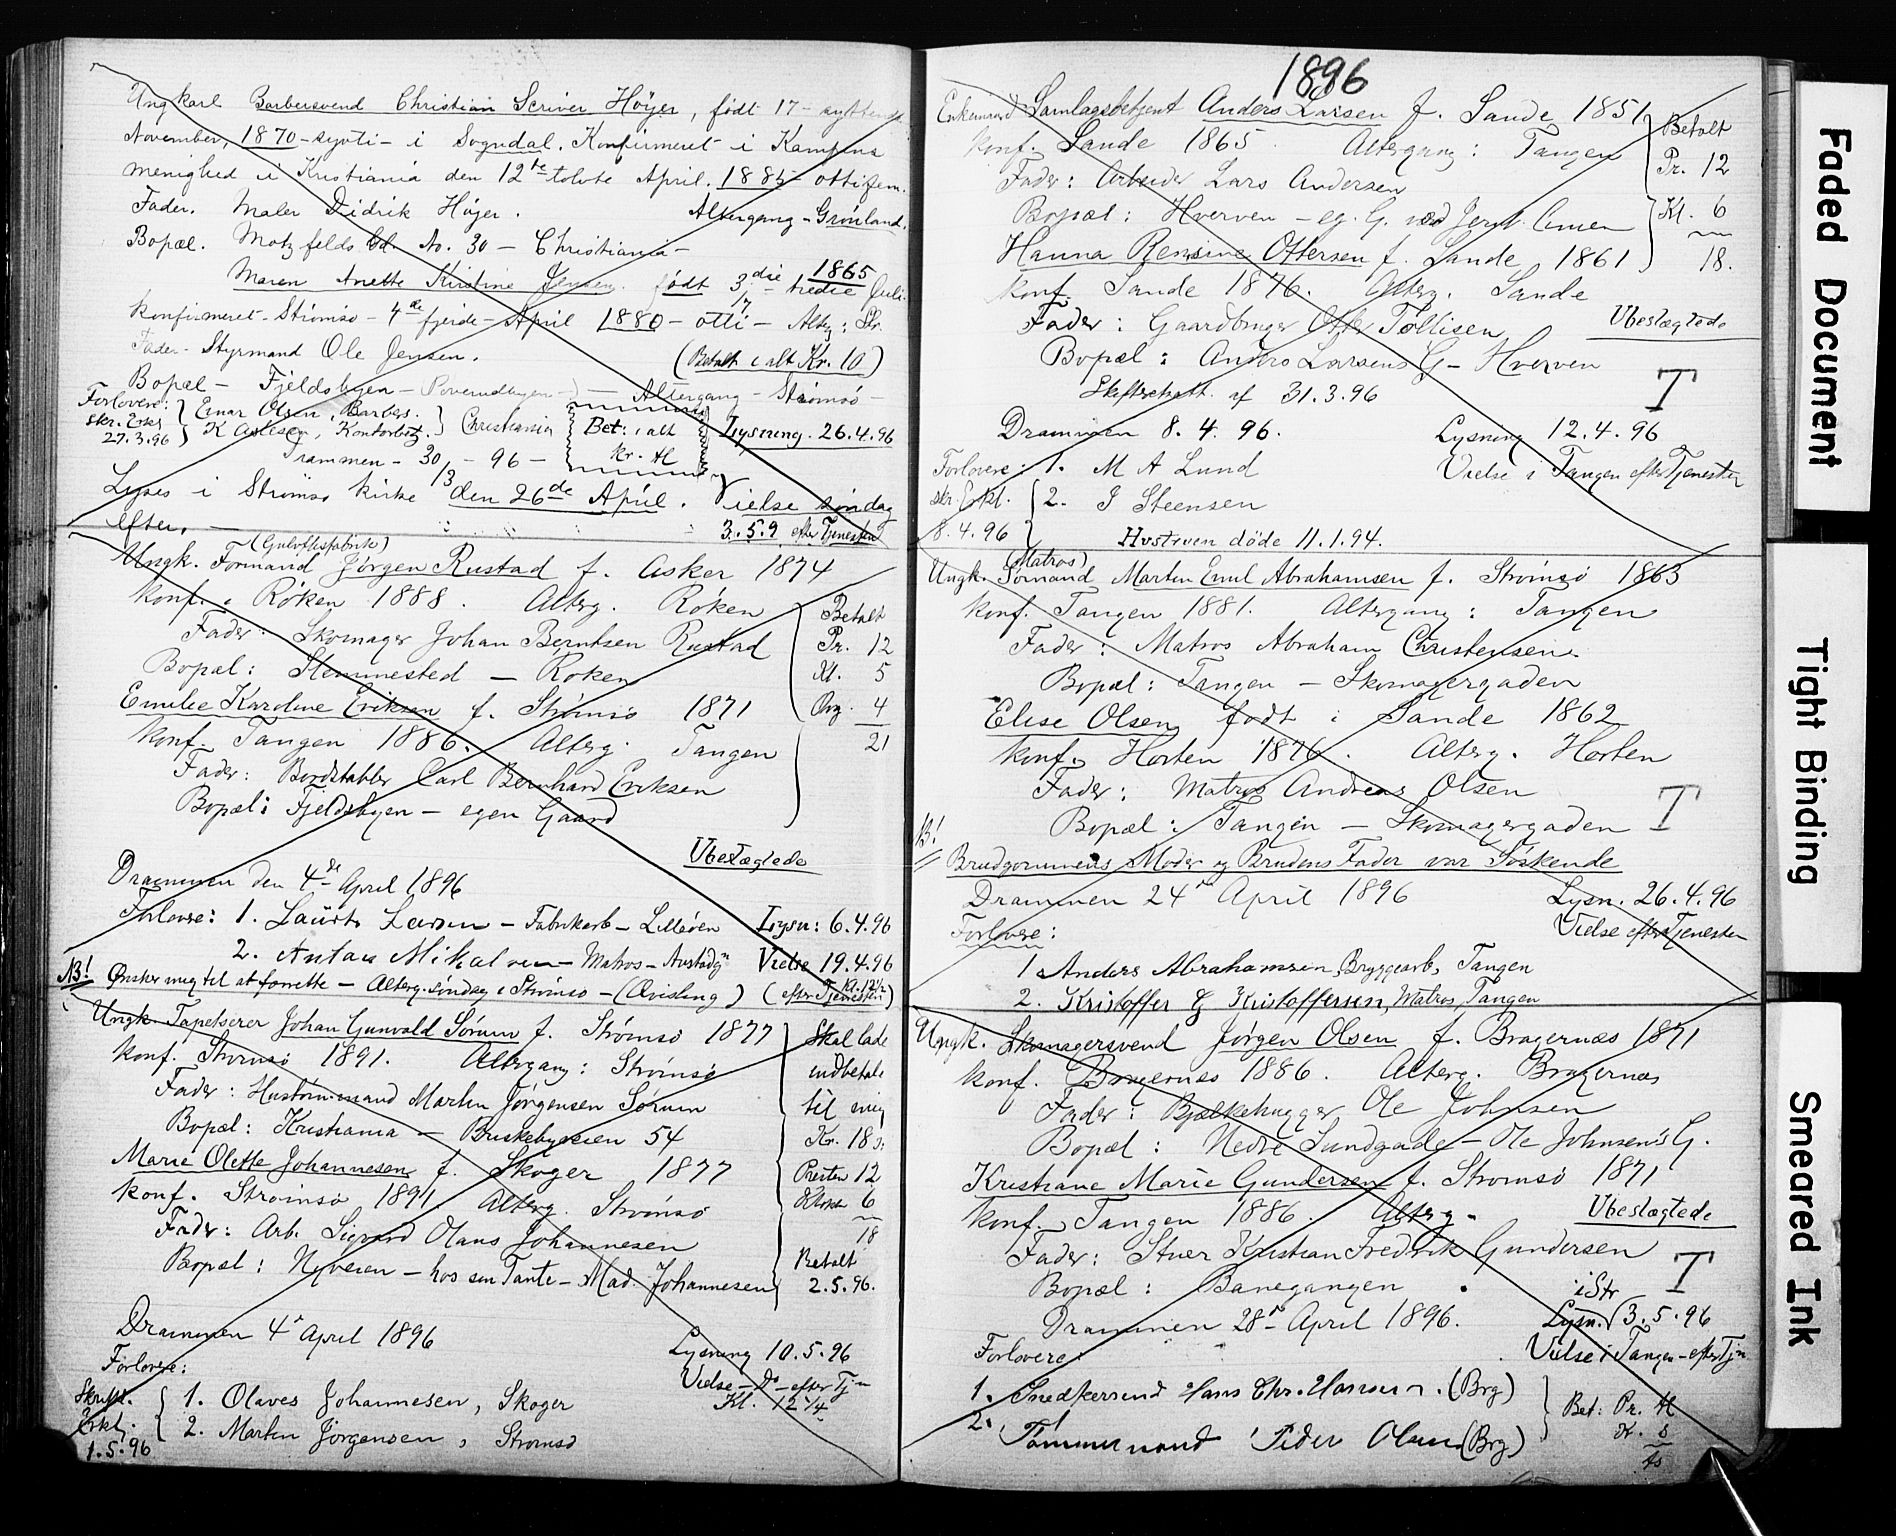 Ungkarl Barbersvend Christian Scriver Höyer, født 17 - syttende
November, 1870 - sytti - i Sogndal. Konfirmeret i Kampens
menighed i Kristiania den 12te tolvte April. 1885 ottifem.
Fader. Maler Didrik Höyer. Altergang - Grønland.
Bopæl. Motzfelds Gd. No. 30 - Christiania -
Maren Anette Kirstine Jensen. født 3die tredie Juli 1865
konfirmeret - Strømsø - 4de fjerde - April 1880 - otti - Altg: Str.
Fader - Styrmand Ole Jensen. (Betalt i alt Kr. 10)
Bopæl - Fjeldsbyen - Altergang - Strømsø -
Forlovere: Einar Olsen, Barbers.
skr. Erkl. K Carlsen, Kontorbtj. Christiania Bet: i alt Lysning. 26.4.96
27.3.96
Drammen - 30/3 - 96 - kr.
Lyses i Strømsø kirke den 26de April. Vielse søndag
efter. 3.5.9 efter Tjenesten
(Gulvflisfabrik)
Ungk. Formand Jörgen Rustad f. Asker 1874
konf. Røken 1888. Alterg. Røken Betalt
Fader: Skomager Johan Berntsen Rustad Pr. 12
Bopæl: Slemmested - Røken Kl. 5
Emilie Karoline Eriksen f. Strømsø 1871 Org. 4
konf. Tangen 1886. Alterg. Tangen 21
Fader: Bordstabler Carl Bernhard Eriksen
Bopæl: Fjeldsbyen - egen Gaard
Ubeslægtede
Drammen den 4de April 1896
Forlovere: 1. Laurits Larsen - Fabrikarb - Lilleøen Lysn: 6.4.96
2. Antau Mikalsen - Matros - Vielse 19.4.96
NB! Ønsker mig til at forrette - Alterg. søndag i Strømsø - (Qvisling) (efter Tjenesten) Kl. 12½
Ungk. Tapetserer Johan Gunvald Sörum f. Strømsø 1877 Skal lade
konf. Strømsø 1891. Altergang: Strømsø indbetale
Fader: Hustømmermand Martin Jørgensen Sørum til mig
Bopæl: Kristiania - Briskebyveien 54 Kr. 18
Marie Olette Johannesen f. Skoger 1877 Presten 12
konf. Strømsø 1891 Alterg. Strømsø Klokk 6
Fader: Arb. Sigvard Olaus Johannesen 18
Bopæl: Nyveien - hos sin Tante - Mad. Johannesen Betalt
2.5.96.
Drammen 4de April 1896 Lysning 10.5.96
Forlovere: Vielse - Do - efter Tjn
Skriftl. 1. Olaves Johannesen, Skoger Kl. 12¼
Erkl. 2. Martin Jørgensen, Strømsø
1.5.96
1896
Enkemand Samlagsbetjent Anders Larsen f. Sande 1851 Betalt
konf. Sande 1865 Altergang: Tangen Pr. 12
Fader: Arbeider Lars Andersen
Bopæl: Hverven - eg. G. ved Jernb. Linien Kl. 6
Hanna Rensine Ottersen f. Sande 1861 18.
konf. Sande 1876. Alterg. Sande
Fader: Gaardbruger Otter Tollisen Ubeslægtede
Bopæl: Anders Larsens G - Hverven
Skifteattest af 31.3.96 T
Drammen 8.4.96. Lysning 12.4.96
Forlovere: 1. M A Lund Vielse i Tangen efter Tjenesten
skr. Erkl. 2. J Steensen
8.4.96 Hustruen döde 11.1.94.
(Matros)
Ungk. Sømand Martin Emil Abrahamsen f. Strømsø 1863
konf. Tangen 1881. Altergang: Tangen
Fader: Matros Abraham Christensen.
Bopæl: Tangen - Skomagergaden
Elise Olsen født i Sande 1862
konf. Horten 1876. Alterg. Horten
Fader: Matros Andreas Olsen
Bopæl: Tangen - Skomagergaden T
NB! Brudgommens Moder og Brudens Fader var Søskende
Drammen 24de April 1896 Lysn. 26.4.96
Forlovere: Vielse efter Tjenesten
1 Anders Abrahamsen, Bryggearb, Tangen
2. Kristoffer G Kristoffersen, Matros, Tangen
Ungk. Skomagersvend Jørgen Olsen f. Bragernæs 1871
konf. Bragernæs 1886. Alterg. Bragernæs
Fader: Bjælkehugger Ole Johnsen
Bopæl: Nedre Sundgade - Ole Johnsen's G.
Kristiane Marie Gundersen f. Strømsø 1871
konf. Tangen 1886. Alterg. Ubeslægtede
Fader: Stuer Kristian Fredrik Gundersen
Bopæl: Banegangen. T
i Str
Drammen 28de April 1896. Lysn. 3.5.96
Forlovere: Vielse i Tangen - efter Tjn.
1. Snedkersvend Hans Chr. Hansen. (Brg) Bet: Pr.
2. Tømmermand Peder Olsen (Brg) K. 5
Faded Document
Tight Binding
Smeared Ink